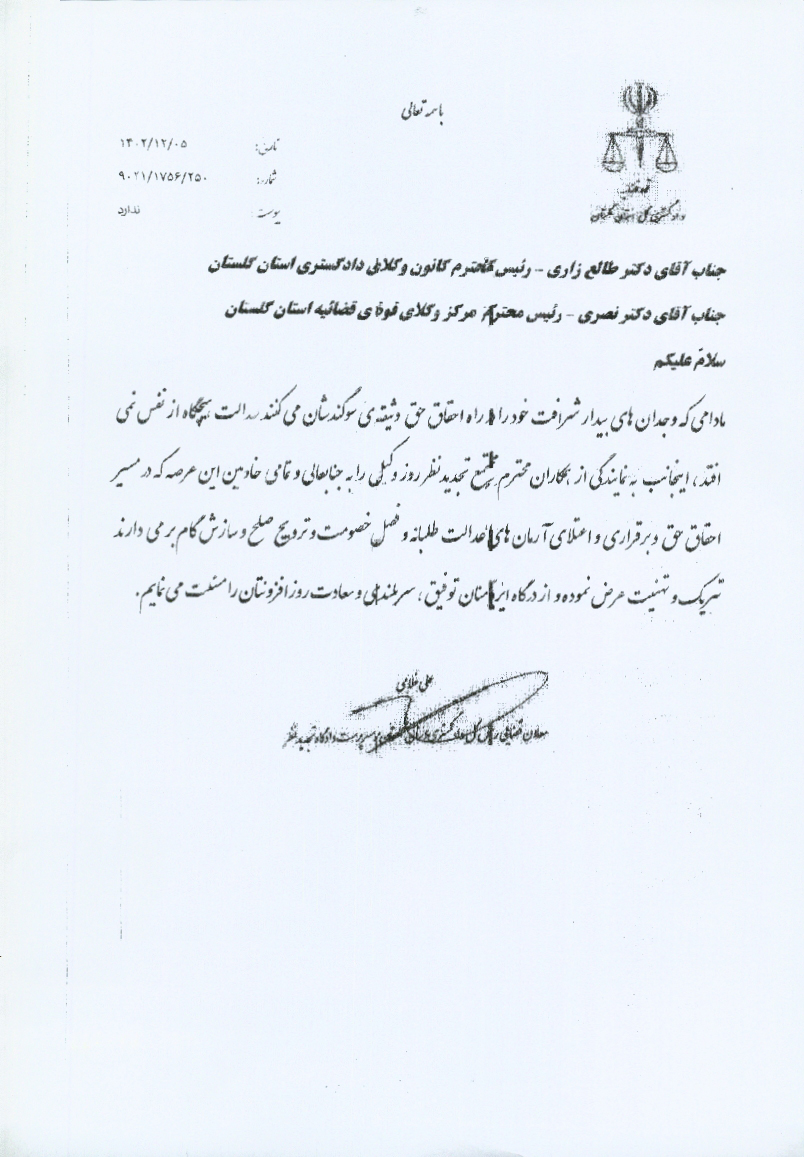 باسمه تعالی
تاریخ: ۱۴۰۲/۱۲/۰۵
شماره: ۹۰۲۱/۱۷۵۶/۲۵۰
پیوست: ندارد
قوه قضائیه
دادگستری کل استان گلستان
جناب آقای دکتر طالع زاری - رئیس محترم کانون وکلای دادگستری استان گلستان
جناب آقای دکتر نصری - رئیس محترم مرکز وکلای قوه ی قضائیه استان گلستان
سلام علیکم
مادامی که وجدان های بیدار شرافت خود را در راه احقاق حق وثیقه ی سوگندشان می کنند عدالت هیچگاه از نفس نمی
افتد، اینجانب به نمایندگی از همکاران محترم مجتمع تجدید نظر روز وکیل را به جنابعالی و تمامی خادمین این عرصه که در مسیر
احقاق حق و برقراری و اعتلای آرمان های عدالت طلبانه و فصل خصومت و ترویج صلح و سازش گام بر می دارند
تبریک و تهنیت عرض نموده و از درگاه ایزد منان توفیق، سربلندی و سعادت روز افزونتان را مسئلت می نمایم.
علی غلامی
معاون قضایی رئیس کل دادگستری استان گلستان و سرپرست دادگاه تجدید نظر